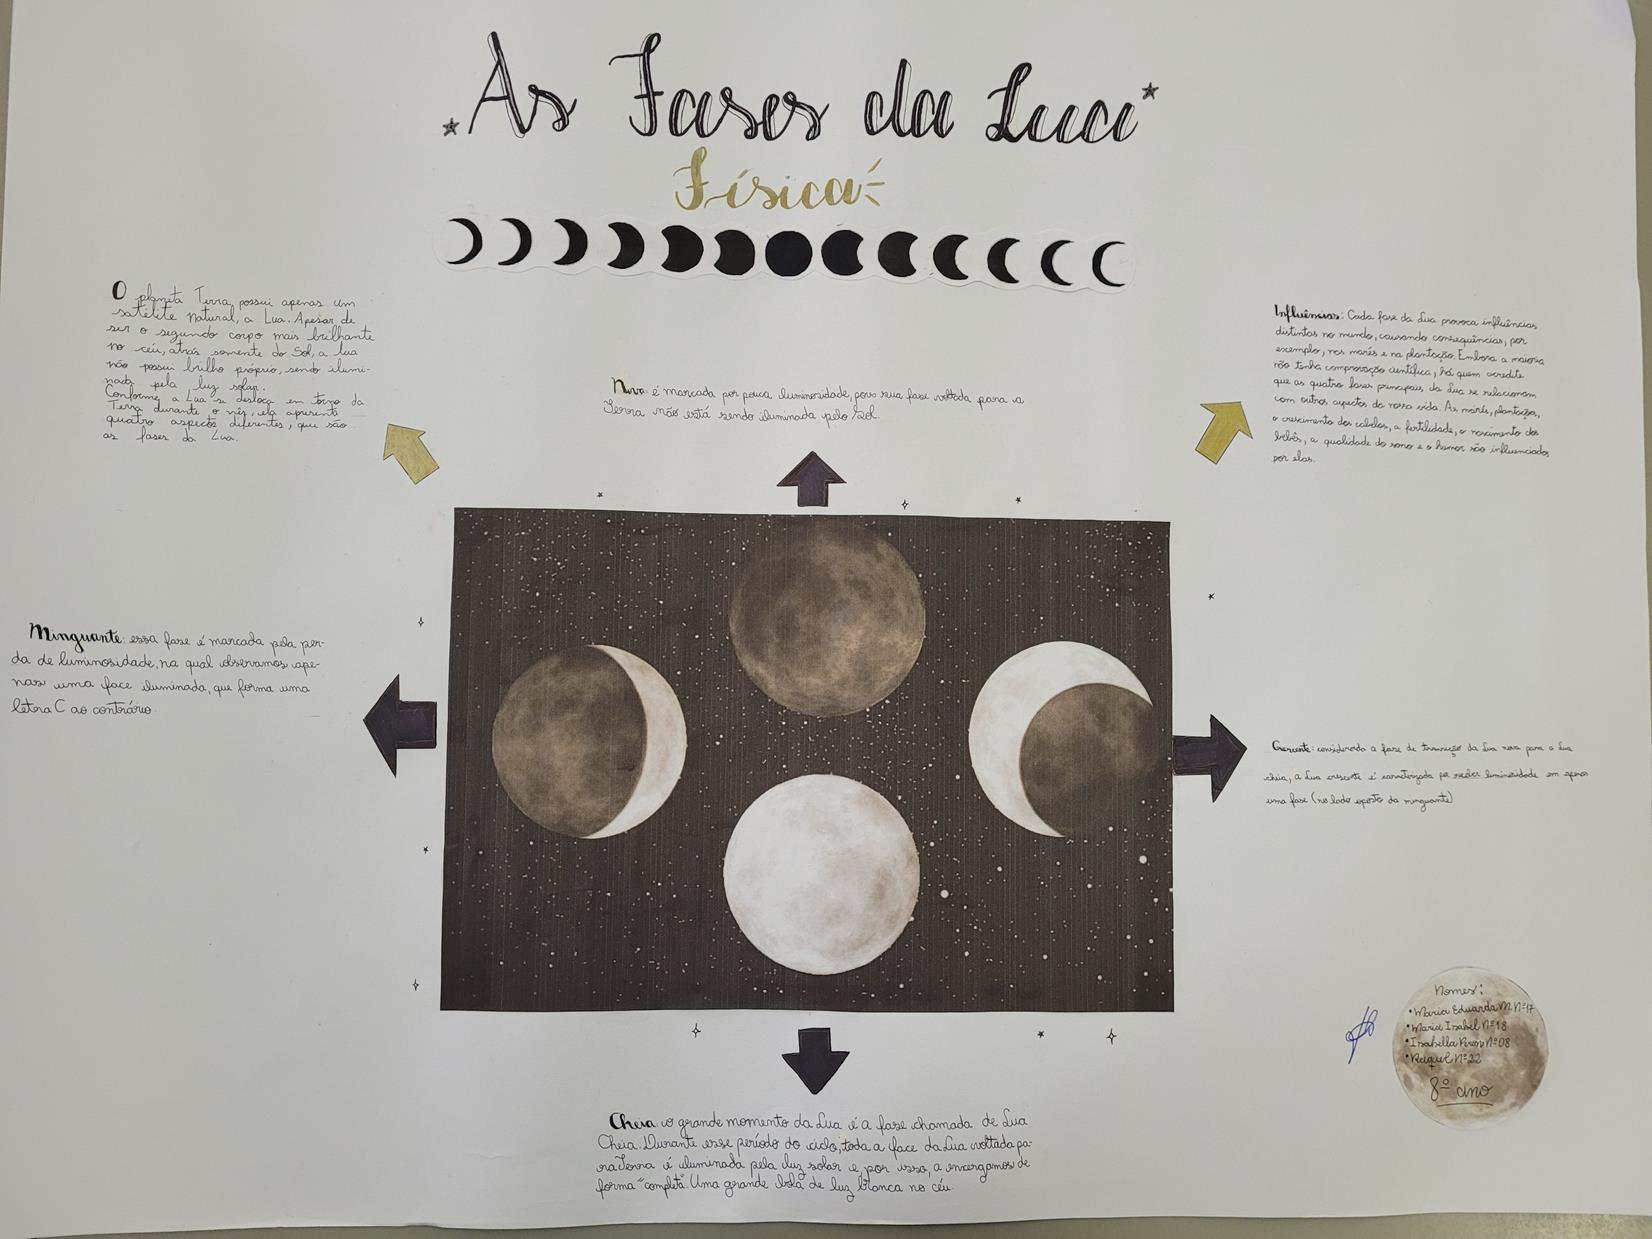 As Fases da Lua
Física
O planeta Terra possui apenas um
satélite natural, a Lua. Apesar de
ser o segundo corpo mais brilhante
no céu, atrás somente do Sol, a lua
não possui brilho próprio, sendo ilumi-
nada pela luz solar.
Conforme a Lua se desloca em torno da
Terra durante o mês, ela apresenta
quatro aspectos diferentes, que são
as fases da Lua.
Nova: é marcada por pouca luminosidade, pois sua fase voltada para a
Terra não está sendo iluminada pelo Sol.
Influências: Cada fase da Lua provoca influências
distintas no mundo, causando consequências, por
exemplo, nas marés e na plantação. Embora a maioria
não tenha comprovação científica, há quem acredite
que as quatro fases principais da Lua se relacionam
com outros aspectos da nossa vida. As marés, plantações,
o crescimento dos cabelos, a fertilidade, o nascimento dos
bebês, a qualidade do sono e o humor são influenciados
por elas.
Minguante: essa fase é marcada pela per-
da de luminosidade, na qual observamos ape-
nas uma face iluminada, que forma uma
letra C ao contrário.
Crescente: considerada a fase de transição da Lua nova para a Lua
cheia, a Lua crescente é caracterizada por receber luminosidade em apenas
uma fase (no lado oposto da minguante)
Cheia: o grande momento da Lua é a fase chamada de Lua
Cheia. Durante esse período do ciclo, toda a face da Lua voltada pa-
ra Terra é iluminada pela luz solar e, por isso, a enxergamos de
forma "completa". Uma grande bola de luz branca no céu.
Nomes:
• Maria Eduarda M. Nº17
• Maria Isabel Nº18
• Isabella Nº08
• Raquel Nº22
8º ano